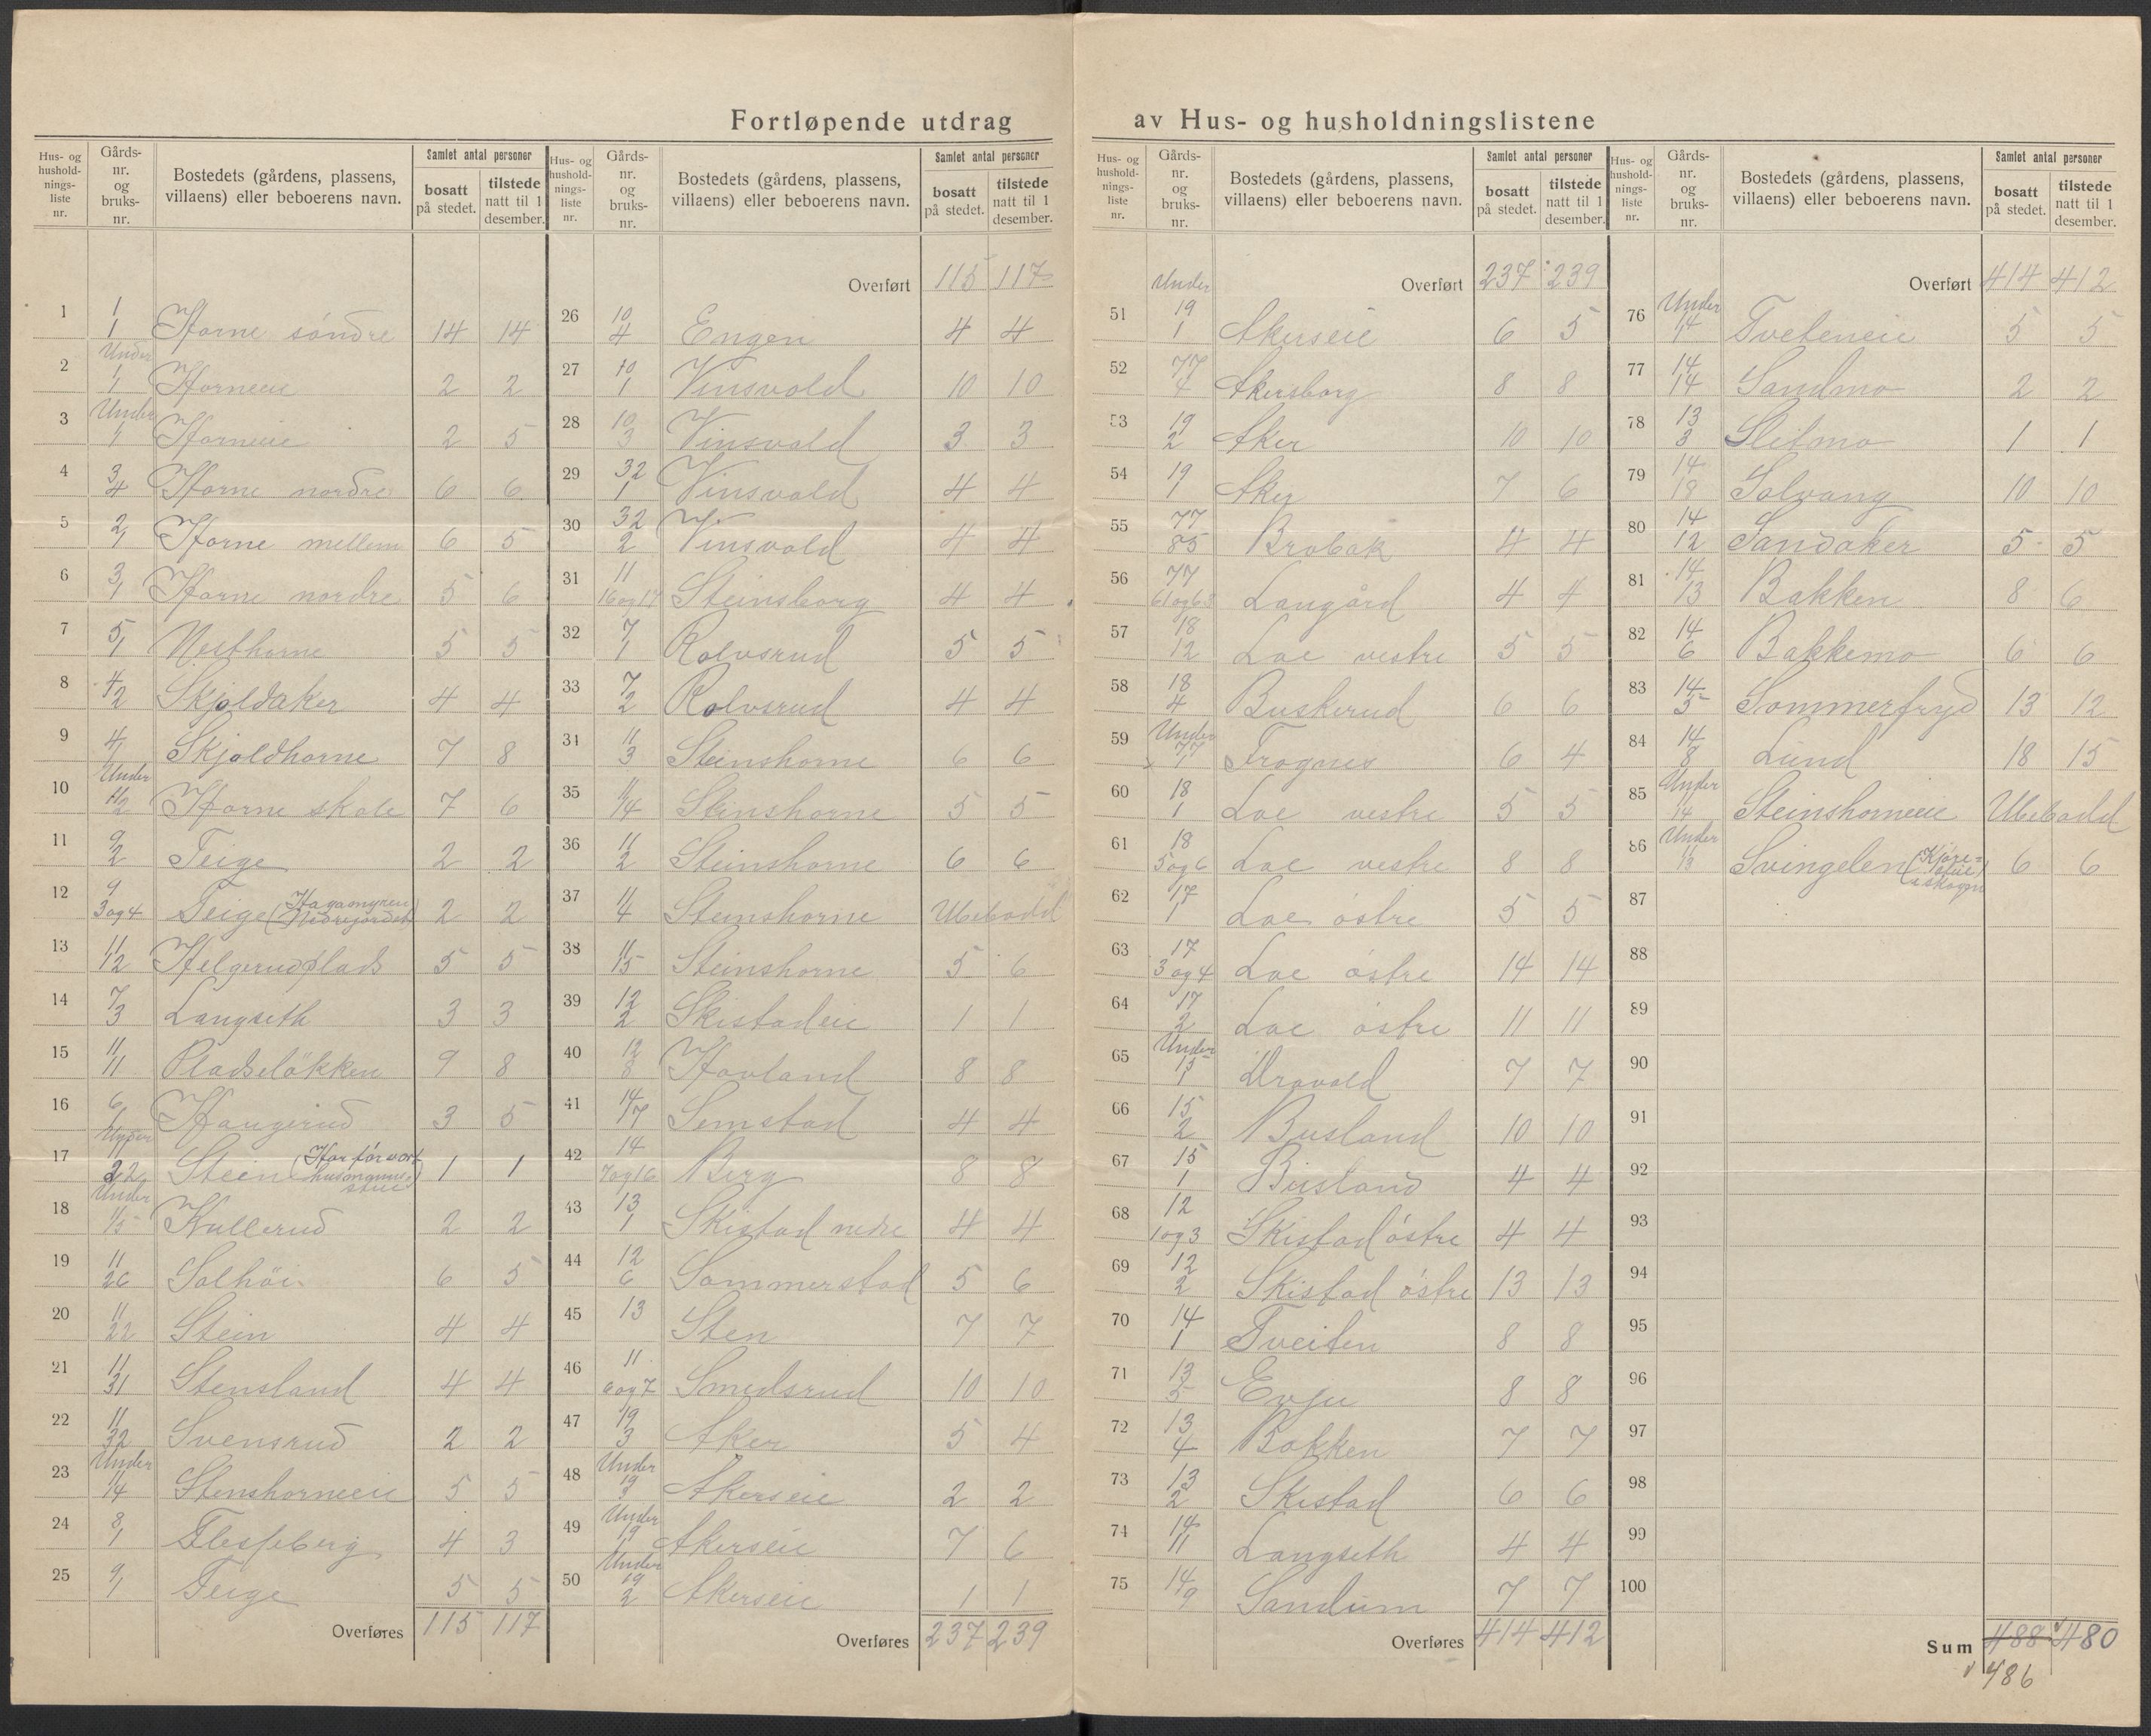 Fortløpende utdrag av Hus- og husholdningslistene
Hus- og hushold-nings-liste nr. Gårds-nr. og bruks-nr. Bostedets (gårdens, plassens, villaens) eller beboerens navn. Samlet antal personer bosatt på stedet. tilstede natt til 1 desember.
1 1/1 Horne söndre 14 14
2 Under 1/1 Horneeie 2 2
3 Under 1 Horneeie 2 5
4 3/4 Horne nordre 6 6
5 2/1 Horne mellem 6 5
6 3/1 Horne nordre 5 6
7 5/1 Vesthorne 5 5
8 4/2 Skjoldaker 4 4
9 4/1 Skjoldhorne 7 8
10 Under 4/2 Horne skole 7 6
11 9/2 Teige 2 2
12 9/3 og 4 Teige ( Nedrejordet) 2 2
13 11/12 Helgerudplads 5 5
14 7/3 Langseth 3 3
15 11/11 Pladselökken 9 8
16 6/1 Haugerud 3 5
17 Under 11/22 Stein (Har før vært husmannsstue) 1 1
18 Under 11/5 Kullerud 2 2
19 11/26 Solhöi 6 5
20 11/22 Stein 4 4
21 11/31 Stensland 4 4
22 11/32 Svensrud 2 2
23 Under 11/4 Stenshorneeie 5 5
24 8/1 Flesseberg 4 3
25 9/1 Teige 5 5
Overføres 115 117
Hus- og hushold-nings-liste nr. Gårds-nr. og bruks-nr. Bostedets (gårdens, plassens, villaens) eller beboerens navn. Samlet antal personer bosatt på stedet. tilstede natt til 1 desember.
Overført 115 117
26 10/4 Engen 4 4
27 10/1 Vinsvold 10 10
28 10/3 Vinsvold 3 3
29 32/1 Vinsvold 4 4
30 32/2 Vinsvold 4 4
31 11/16 og 17 Steinsborg 4 4
32 7/1 Rolvsrud 5 5
33 7/2 Rolvsrud 4 4
34 11/3 Steinshorne 6 6
35 11/14 Steinshorne 5 5
36 11/2 Steinshorne 6 6
37 11/4 Steinshorne Ubebodd
38 11/15 Steinshorne 5 6
39 12/2 Skistadeie 1 1
40 12/8 Hovland 8 8
41 14/17 Semstad 4 4
42 14/7 og 16 Berg 8 8
43 13/1 Skistad nedre 4 4
44 12/6 Sommerstad 5 6
45 13 Sten 7 7
46 11/6 og 7 Smedsrud 10 10
47 19/3 Aker 5 4
48 Under 19/3 Akerseie 2 2
49 Under 19/1 Akerseie 7 6
50 Under 19/2 Akerseie 1 1
Overføres 237 239
Hus- og hushold-nings-liste nr. Gårds-nr. og bruks-nr. Bostedets (gårdens, plassens, villaens) eller beboerens navn. Samlet antal personer bosatt på stedet. tilstede natt til 1 desember.
Overført 237 239
51 Under 19/1 Akerseie 6 5
52 77/4 Akersborg 8 8
53 19/2 Aker 10 10
54 19/1 Aker 7 6
55 77/85 Brobak 4 4
56 77/61 og 63 Langård 4 4
57 18/12 Loe vestre 5 5
58 18/4 Buskerud 6 6
59 Under 77/1 Frognes 6 4
60 18/1 Loe vestre 5 5
61 18/5 og 6 Loe vestre 8 8
62 17/1 Loe östre 5 5
63 17/3 og 4 Loe östre 14 14
64 17/2 Loe östre 11 11
65 Under 15/1 Uravold 7 7
66 15/2 Busland 10 10
67 15/1 Busland 4 4
68 12/1 og 3 Skistad östre 4 4
69 12/2 Skistad östre 13 13
70 14/1 Tveiten 8 8
71 13/5 Evju 8 8
72 13/4 Bakken 7 7
73 13/2 Skistad 6 6
74 14/11 Langseth 4 4
75 14/9 Sandum 7 7
Overføres 414 412
Hus- og hushold-nings-liste nr. Gårds-nr. og bruks-nr. Bostedets (gårdens, plassens, villaens) eller beboerens navn. Samlet antal personer bosatt på stedet. tilstede natt til 1 desember.
Overført 414 412
76 Under 14/1 Tveteneie 5 5
77 14/14 Sandmo 2 2
78 13/3 Slitmo 1 1
79 14/18 Solvang 10 10
80 14/12 Sandaker 5 5
81 14/13 Bakken 8 6
82 14/6 Bakkemo 6 6
83 14/5 Sommerfryd 13 12
84 14/8 Lund 18 15
85 Under 14 Steinshorneeie Ubebodd
86 Under 13 Svingelen (i skogen) 6 6
87
88
89
90
91
92
93
94
95
96
97
98
99
100
Sum 488 480
486